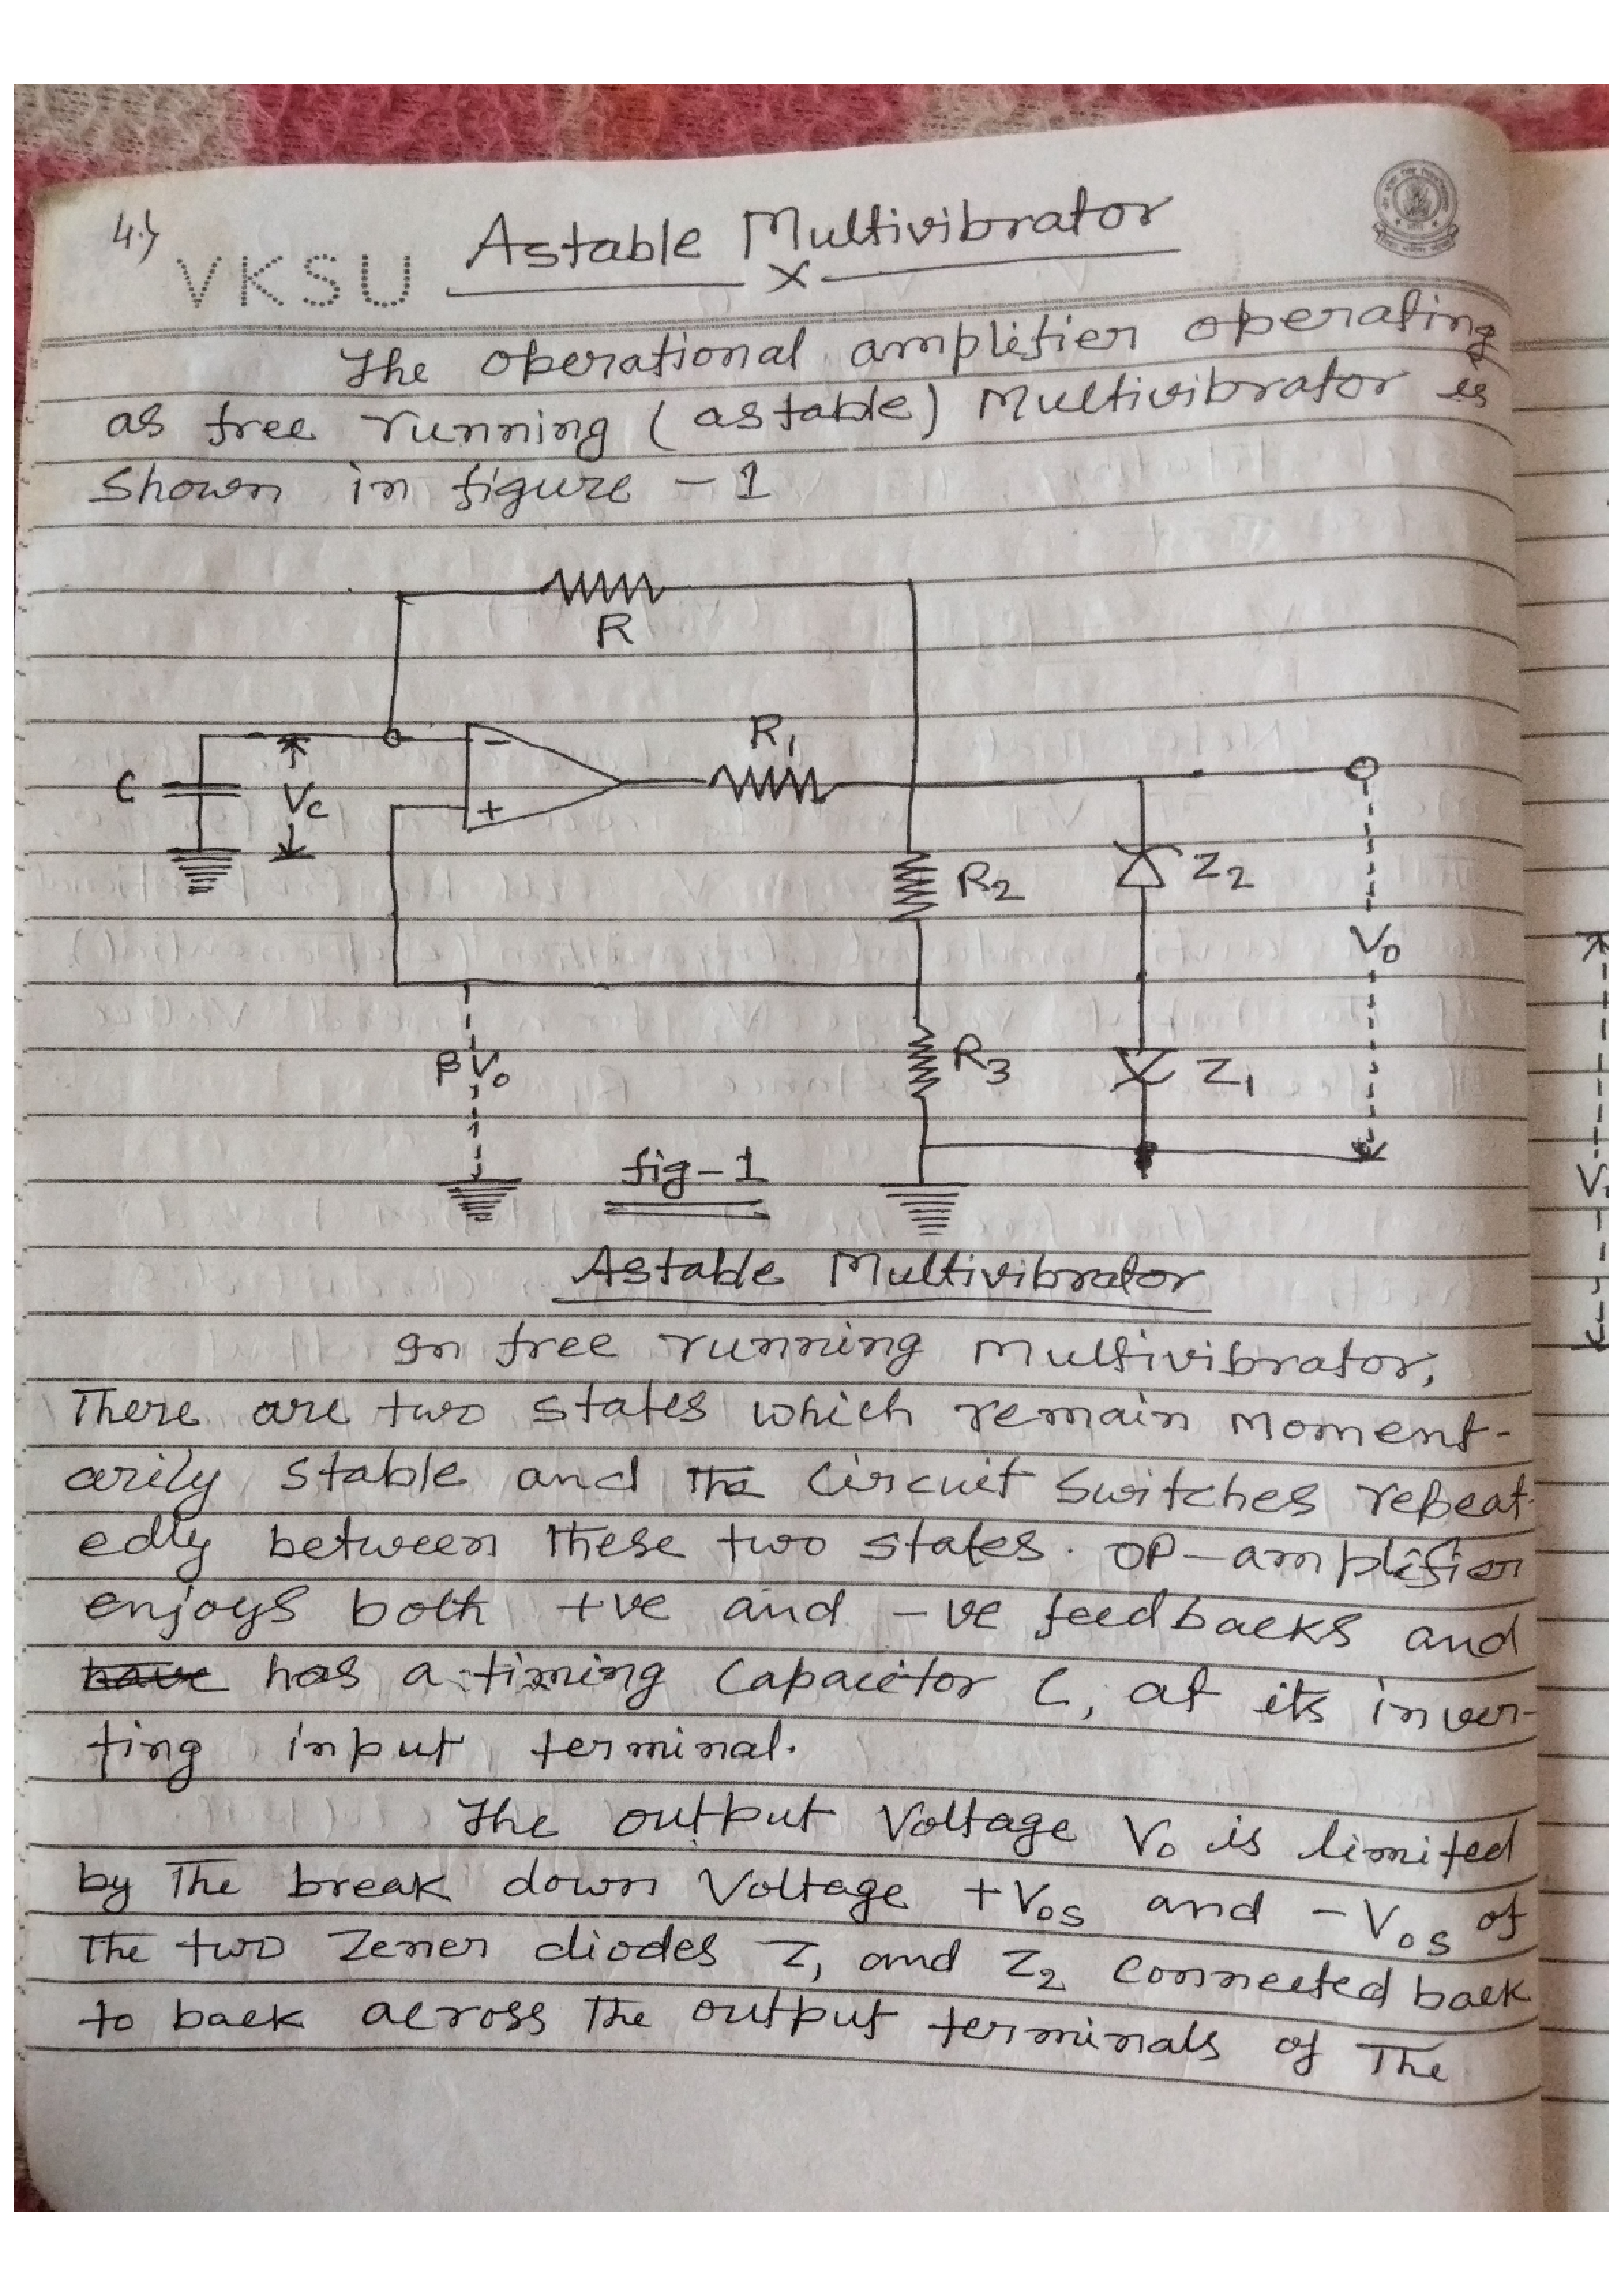 4.)
VKSU
Astable Multivibrator
x
The operational amplifier operating
as free running (astable) Multivibrator is
shown in figure - 1
R
R1
C
Vc
-
+
R2
Z2
Vo
βVo
R3
Z1
fig-1
Astable Multivibrator
In free running multivibrator,
There are two states which remain moment-
arily stable and the circuit switches repeat-
edly between these two states. OP-amplifier
enjoys both +ve and -ve feedbacks and
have has a timing capacitor C, at its inver-
ting input terminal.
The output voltage Vo is limited
by The break down Voltage +Vos and -Vos of
The two Zener diodes Z1 and Z2 connected back
to back across The output terminals of The